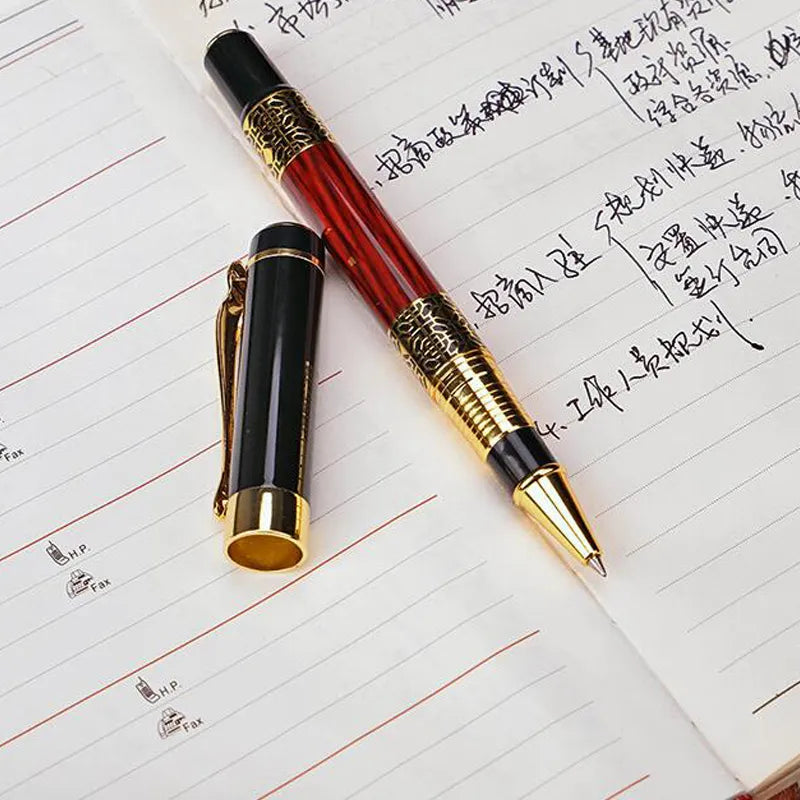 市场
招商政策 计划
基地现有资源
政府资源
综合各资源
招商入驻
规划快递
安置快递
签订合同
4、工作人员规划
Fax
H.P.
Fax
H.P.
Fax